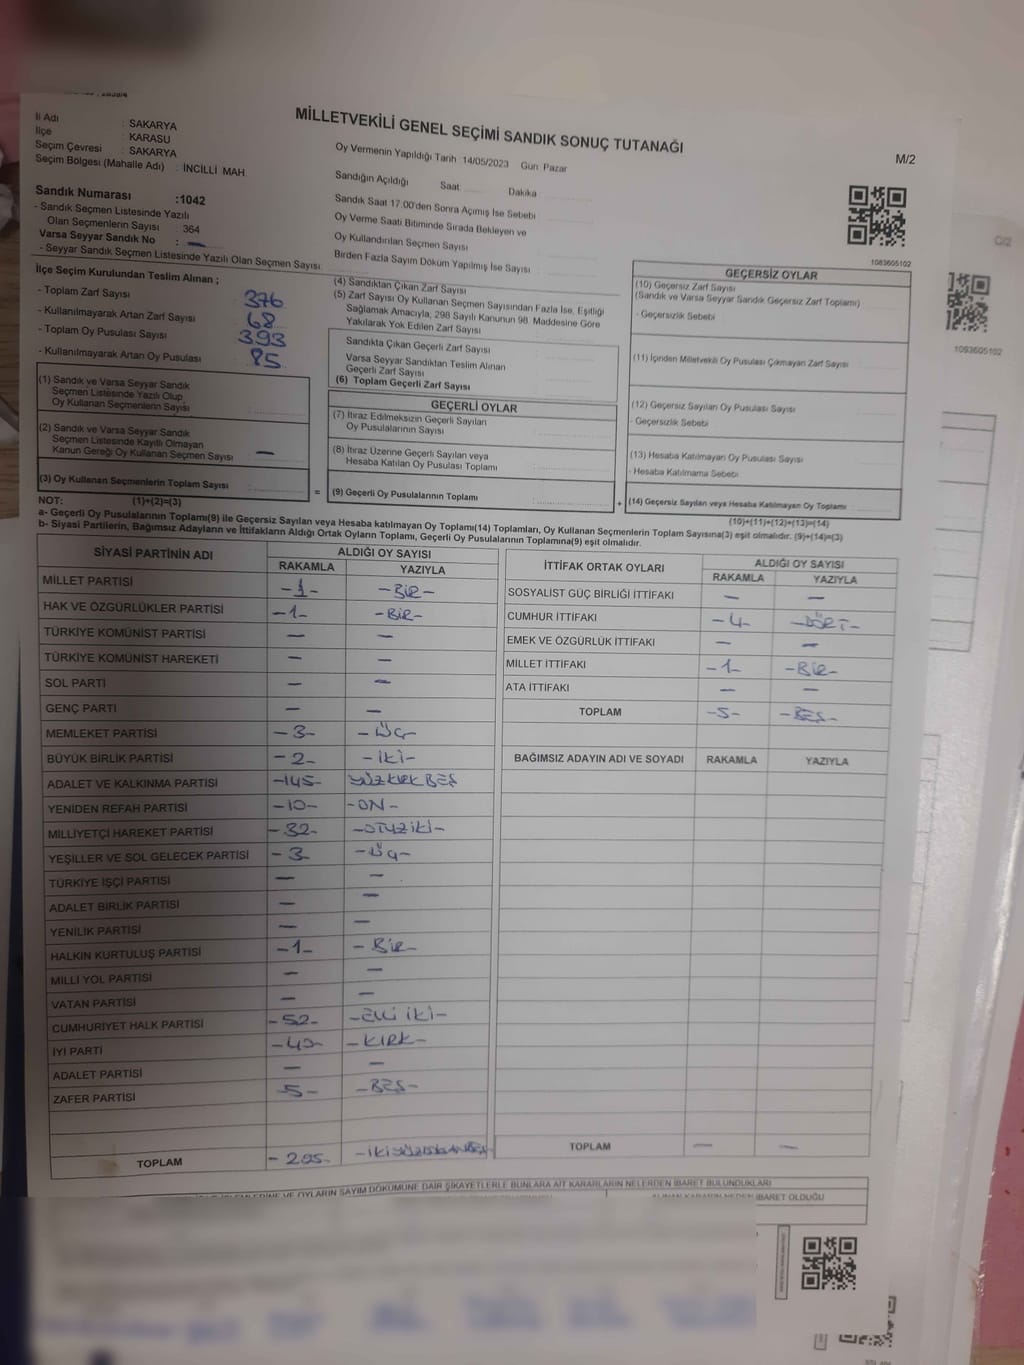 MİLLETVEKİLİ GENEL SEÇİMİ SANDIK SONUÇ TUTANAĞI
M/2
İl Adı : SAKARYA
İlçe : KARASU
Seçim Çevresi : SAKARYA
Seçim Bölgesi (Mahalle Adı) : İNCİLLİ MAH.
Sandık Numarası :1042
- Sandık Seçmen Listesinde Yazılı
Olan Seçmenlerin Sayısı : 364
Varsa Seyyar Sandık No : —
- Seyyar Sandık Seçmen Listesinde Yazılı Olan Seçmen Sayısı
Oy Vermenin Yapıldığı Tarih 14/05/2023 Gün: Pazar
Sandığın Açıldığı Saat Dakika
Sandık Saat 17.00'den Sonra Açımış İse Sebebi
Oy Verme Saati Bitiminde Sırada Bekleyen ve
Oy Kullandırılan Seçmen Sayısı
Birden Fazla Sayım Döküm Yapılmış İse Sayısı
1083605102
İlçe Seçim Kurulundan Teslim Alınan ;
- Toplam Zarf Sayısı 376
- Kullanılmayarak Artan Zarf Sayısı 68
- Toplam Oy Pusulası Sayısı 393
- Kullanılmayarak Artan Oy Pusulası 85
(1) Sandık ve Varsa Seyyar Sandık
Seçmen Listesinde Yazılı Olup
Oy Kullanan Seçmenlerin Sayısı
(2) Sandık ve Varsa Seyyar Sandık
Seçmen Listesinde Kayıtlı Olmayan
Kanun Gereği Oy Kullanan Seçmen Sayısı —
(3) Oy Kullanan Seçmenlerin Toplam Sayısı
(4) Sandıktan Çıkan Zarf Sayısı
(5) Zarf Sayısı Oy Kullanan Seçmen Sayısından Fazla İse, Eşitliği
Sağlamak Amacıyla, 298 Sayılı Kanunun 98. Maddesine Göre
Yakılarak Yok Edilen Zarf Sayısı
Sandıkta Çıkan Geçerli Zarf Sayısı
Varsa Seyyar Sandıktan Teslim Alınan
Geçerli Zarf Sayısı
(6) Toplam Geçerli Zarf Sayısı
GEÇERLİ OYLAR
(7) İtiraz Edilmeksizin Geçerli Sayılan
Oy Pusulalarının Sayısı
(8) İtiraz Üzerine Geçerli Sayılan veya
Hesaba Katılan Oy Pusulası Toplamı
= (9) Geçerli Oy Pusulalarının Toplamı
GEÇERSİZ OYLAR
(10) Geçersiz Zarf Sayısı
(Sandık ve Varsa Seyyar Sandık Geçersiz Zarf Toplamı)
- Geçersizlik Sebebi
(11) İçinden Milletvekili Oy Pusulası Çıkmayan Zarf Sayısı
(12) Geçersiz Sayılan Oy Pusulası Sayısı
- Geçersizlik Sebebi
(13) Hesaba Katılmayan Oy Pusulası Sayısı
- Hesaba Katılmama Sebebi
+ (14) Geçersiz Sayılan veya Hesaba Katılmayan Oy Toplamı
NOT: (1)+(2)=(3)
(10)+(11)+(12)+(13)=(14)
a- Geçerli Oy Pusulalarının Toplamı(9) ile Geçersiz Sayılan veya Hesaba katılmayan Oy Toplamı(14) Toplamları, Oy Kullanan Seçmenlerin Toplam Sayısına(3) eşit olmalıdır. (9)+(14)=(3)
b- Siyasi Partilerin, Bağımsız Adayların ve İttifakların Aldığı Ortak Oyların Toplamı, Geçerli Oy Pusulalarının Toplamına(9) eşit olmalıdır.
SİYASİ PARTİNİN ADI ALDIĞI OY SAYISI
RAKAMLA YAZIYLA
MİLLET PARTİSİ -1- -BİR-
HAK VE ÖZGÜRLÜKLER PARTİSİ -1- -BİR-
TÜRKİYE KOMÜNİST PARTİSİ — —
TÜRKİYE KOMÜNİST HAREKETİ — —
SOL PARTİ — —
GENÇ PARTİ — —
MEMLEKET PARTİSİ -3- -ÜÇ-
BÜYÜK BİRLİK PARTİSİ -2- -İKİ-
ADALET VE KALKINMA PARTİSİ -145- YÜZKIRK BEŞ
YENİDEN REFAH PARTİSİ -10- -ON-
MİLLİYETÇİ HAREKET PARTİSİ -32- -OTUZİKİ-
YEŞİLLER VE SOL GELECEK PARTİSİ -3- -ÜÇ-
TÜRKİYE İŞÇİ PARTİSİ — —
ADALET BİRLİK PARTİSİ — —
YENİLİK PARTİSİ — —
HALKIN KURTULUŞ PARTİSİ -1- -BİR-
MİLLİ YOL PARTİSİ — —
VATAN PARTİSİ — —
CUMHURİYET HALK PARTİSİ -52- -ELLİ İKİ-
İYİ PARTİ -40- -KIRK-
ADALET PARTİSİ — —
ZAFER PARTİSİ -5- -BEŞ-
TOPLAM -295-
İTTİFAK ORTAK OYLARI ALDIĞI OY SAYISI
RAKAMLA YAZIYLA
SOSYALİST GÜÇ BİRLİĞİ İTTİFAKI — —
CUMHUR İTTİFAKI -4- -DÖRT-
EMEK VE ÖZGÜRLÜK İTTİFAKI — —
MİLLET İTTİFAKI -1- -BİR-
ATA İTTİFAKI — —
TOPLAM -5- -BEŞ-
BAĞIMSIZ ADAYIN ADI VE SOYADI RAKAMLA YAZIYLA
TOPLAM — —
VE OYLARIN SAYIM DÖKÜMÜNE DAİR ŞİKAYETLERLE BUNLARA AİT KARARLARIN NELERDEN İBARET BULUNDUKLARI
ALINAN KARARIN NEDEN İBARET OLDUĞU
1093605102